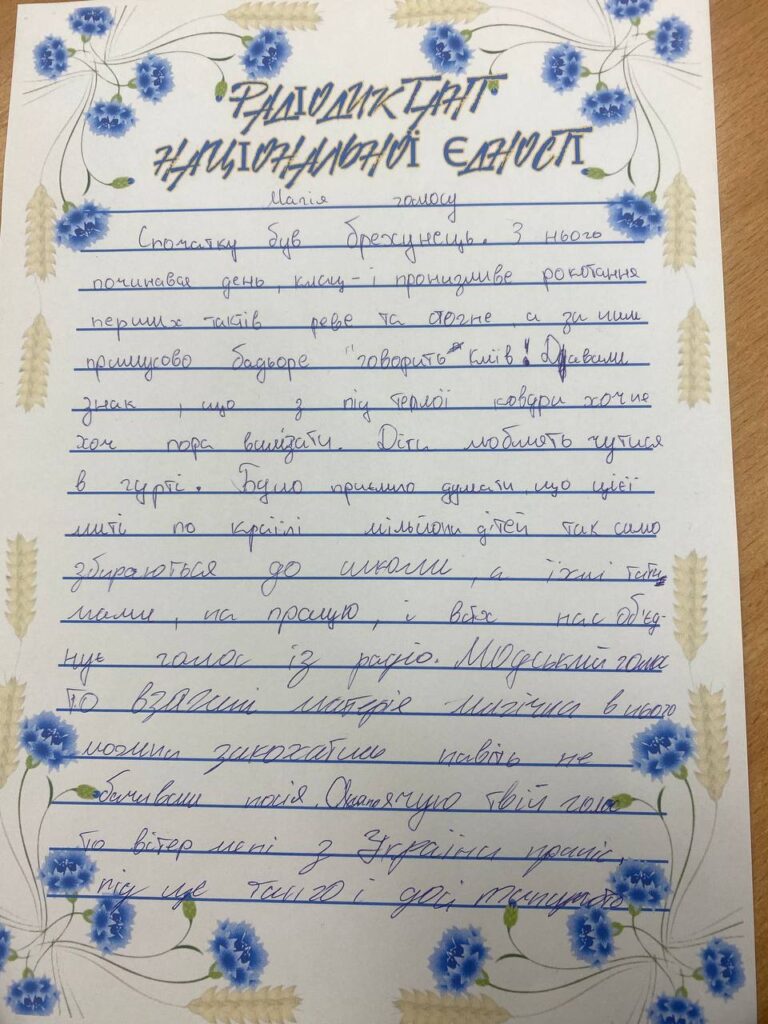 РАДІОДИКТАНТ
НАЦІОНАЛЬНОЇ ЄДНОСТІ
Магія голосу
Спочатку був брехунець. З нього
починавая день, клац - і пронизливе рокотання
перших тактів реве та стогне, а за ним
примусово бадьоре "говорить" Київ! Давали
знак, що з під теплої ковдри хоч не
хоч пора вилізати. Діти люблять чутися
в гурті. Було приємно думати що цієї
миті по країні мільйони дітей так само
збираються до школи, а їхні тати
мами, на працю, і всіх нас об'єд-
нує голос із радіо. Людський голос
то взагалі матерія магічна в нього
можна закохатись навіть не
бачивши носія. чую твій голос
то вітер мені з України приніс,
під це танго і досі